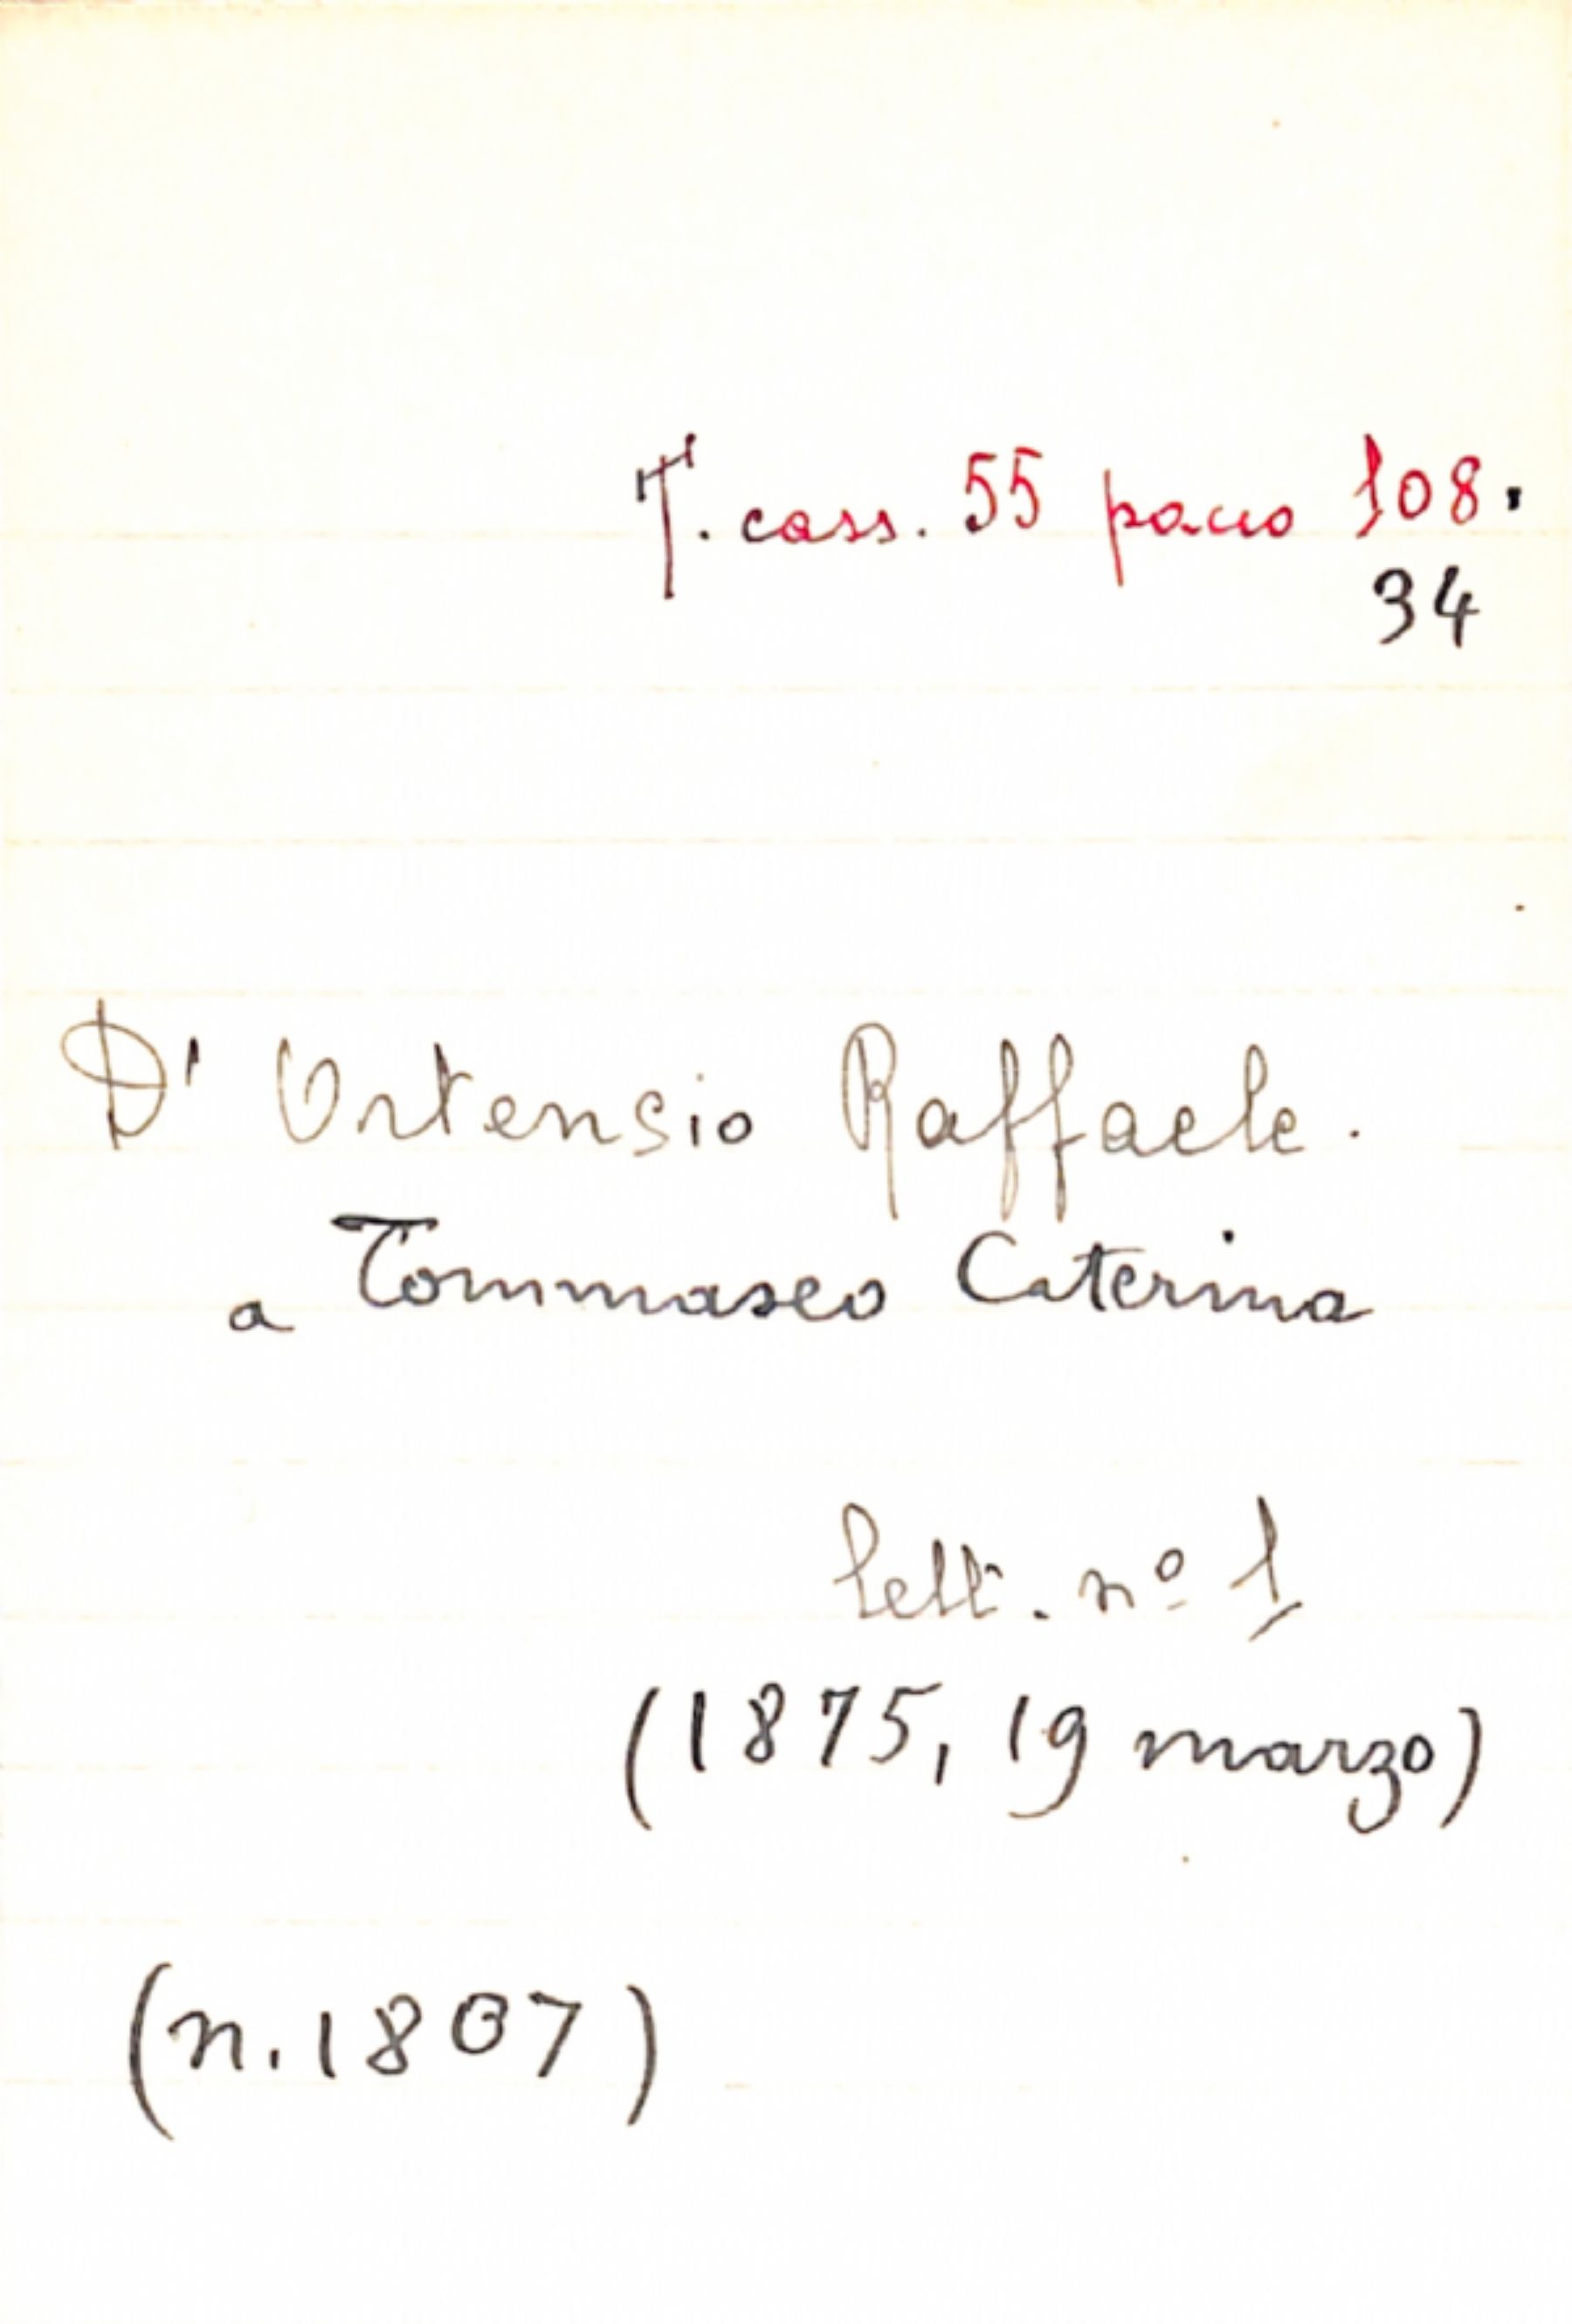 T. cass. 55 pacco 108.
34
D' Ortensio Raffaele.
a Tommaseo Caterina
lett. nº 1
(1875, 19 marzo)
(n. 1807)